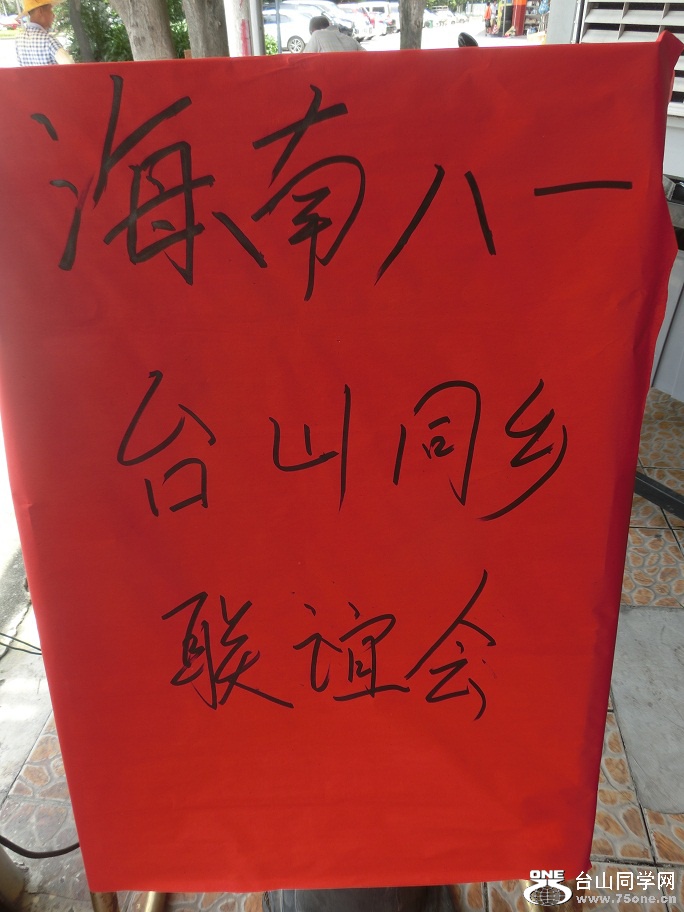 海南八一
台山同乡
联谊会
ONE
台山同学网
www.75one.cn